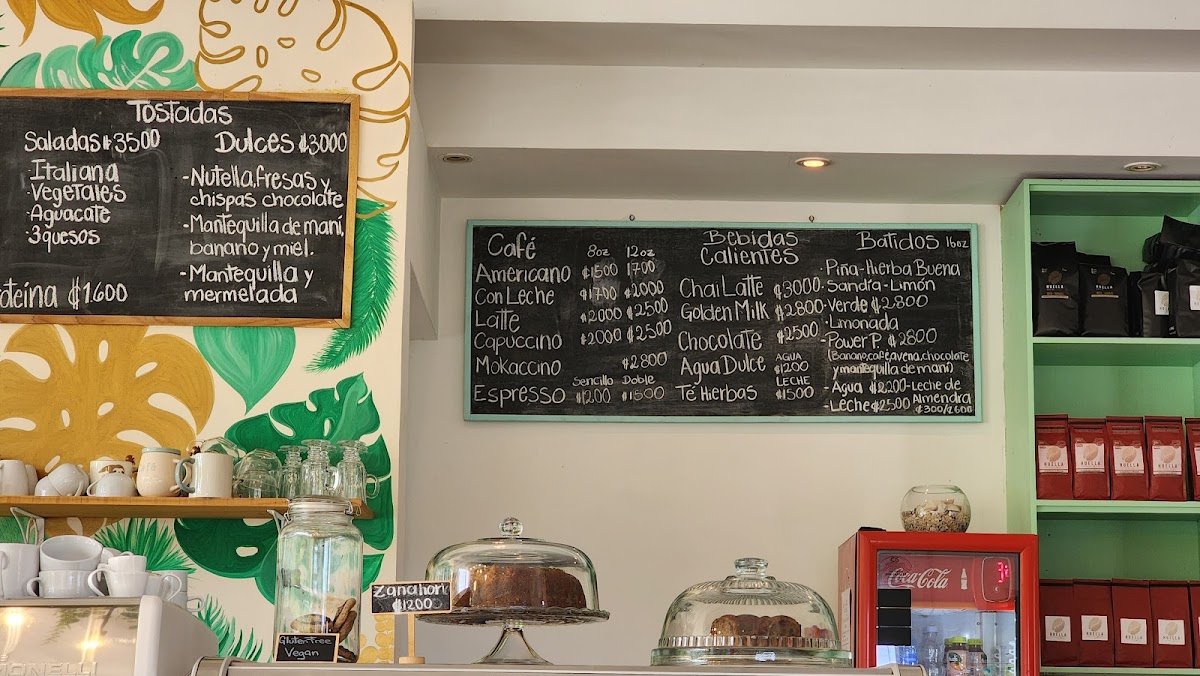 Tostadas
Saladas ₡3500
Italiana
-Vegetales
-Aguacate
-3quesos
₡1.600
Dulces ₡3000
-Nutella, fresas y
chispas chocolate
-Mantequilla de maní,
banano y miel.
-Mantequilla y
mermelada
Café 8oz 12oz
Americano ₡1500 1700
Con Leche ₡1700 ₡2000
Latte ₡2000 ₡2500
Capuccino ₡2000 ₡2500
Mokaccino ₡2800
Sencillo Doble
Espresso ₡1200 ₡1500
Bebidas
Calientes
Chai Latte ₡3000
Golden Milk ₡2800
Chocolate ₡2500
Agua Dulce AGUA
₡1200
Té Hierbas LECHE
₡1500
Batidos 16oz
-Piña-Hierba Buena
-Sandía-Limón
-Verde ₡2800
-Limonada
-Power P. ₡2800
(Banano, café, avena, chocolate
y mantequilla de maní)
-Agua ₡2200-Leche de
-Leche ₡2500 Almendra
Zanahoria
₡1200
Gluten Free
Vegan
MONELLI
Coca-Cola
HUELLA
HUELLA
HUELLA
HUELLA